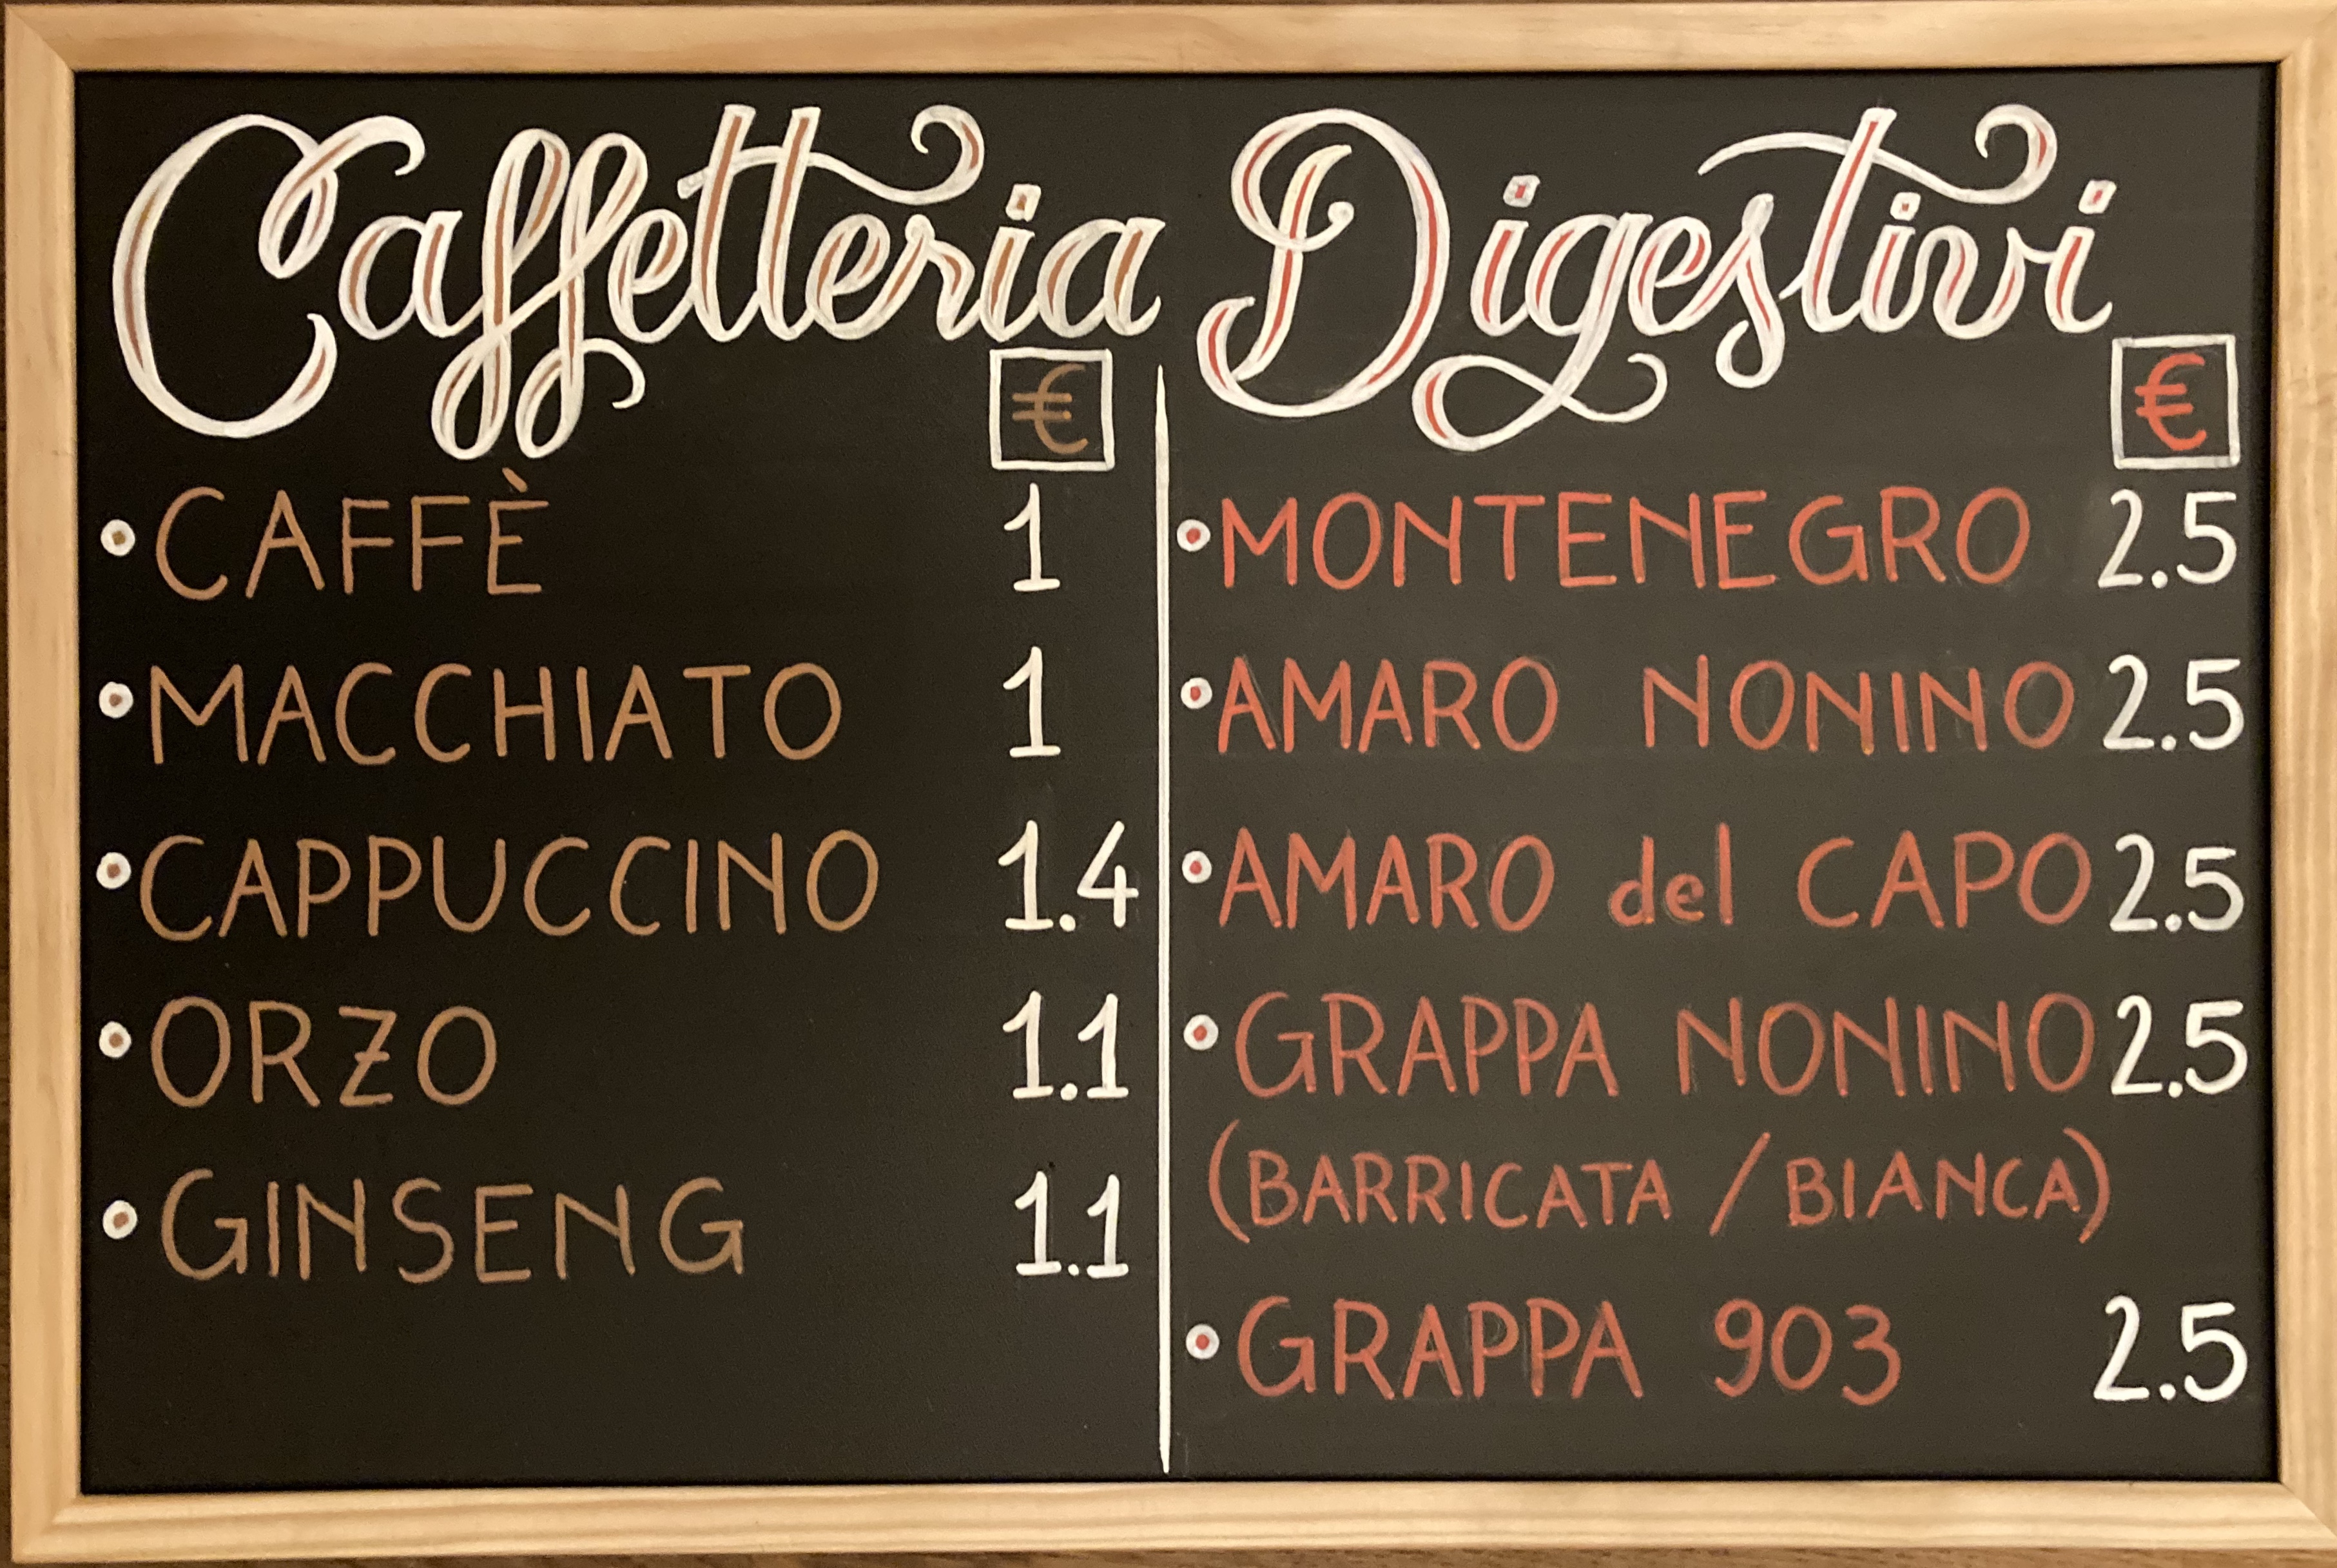 Caffetteria
€
• CAFFÈ 1
• MACCHIATO 1
• CAPPUCCINO 1.4
• ORZO 1.1
• GINSENG 1.1
Digestivi
€
• MONTENEGRO 2.5
• AMARO NONINO 2.5
• AMARO del CAPO 2.5
• GRAPPA NONINO 2.5
(BARRICATA / BIANCA)
• GRAPPA 903 2.5